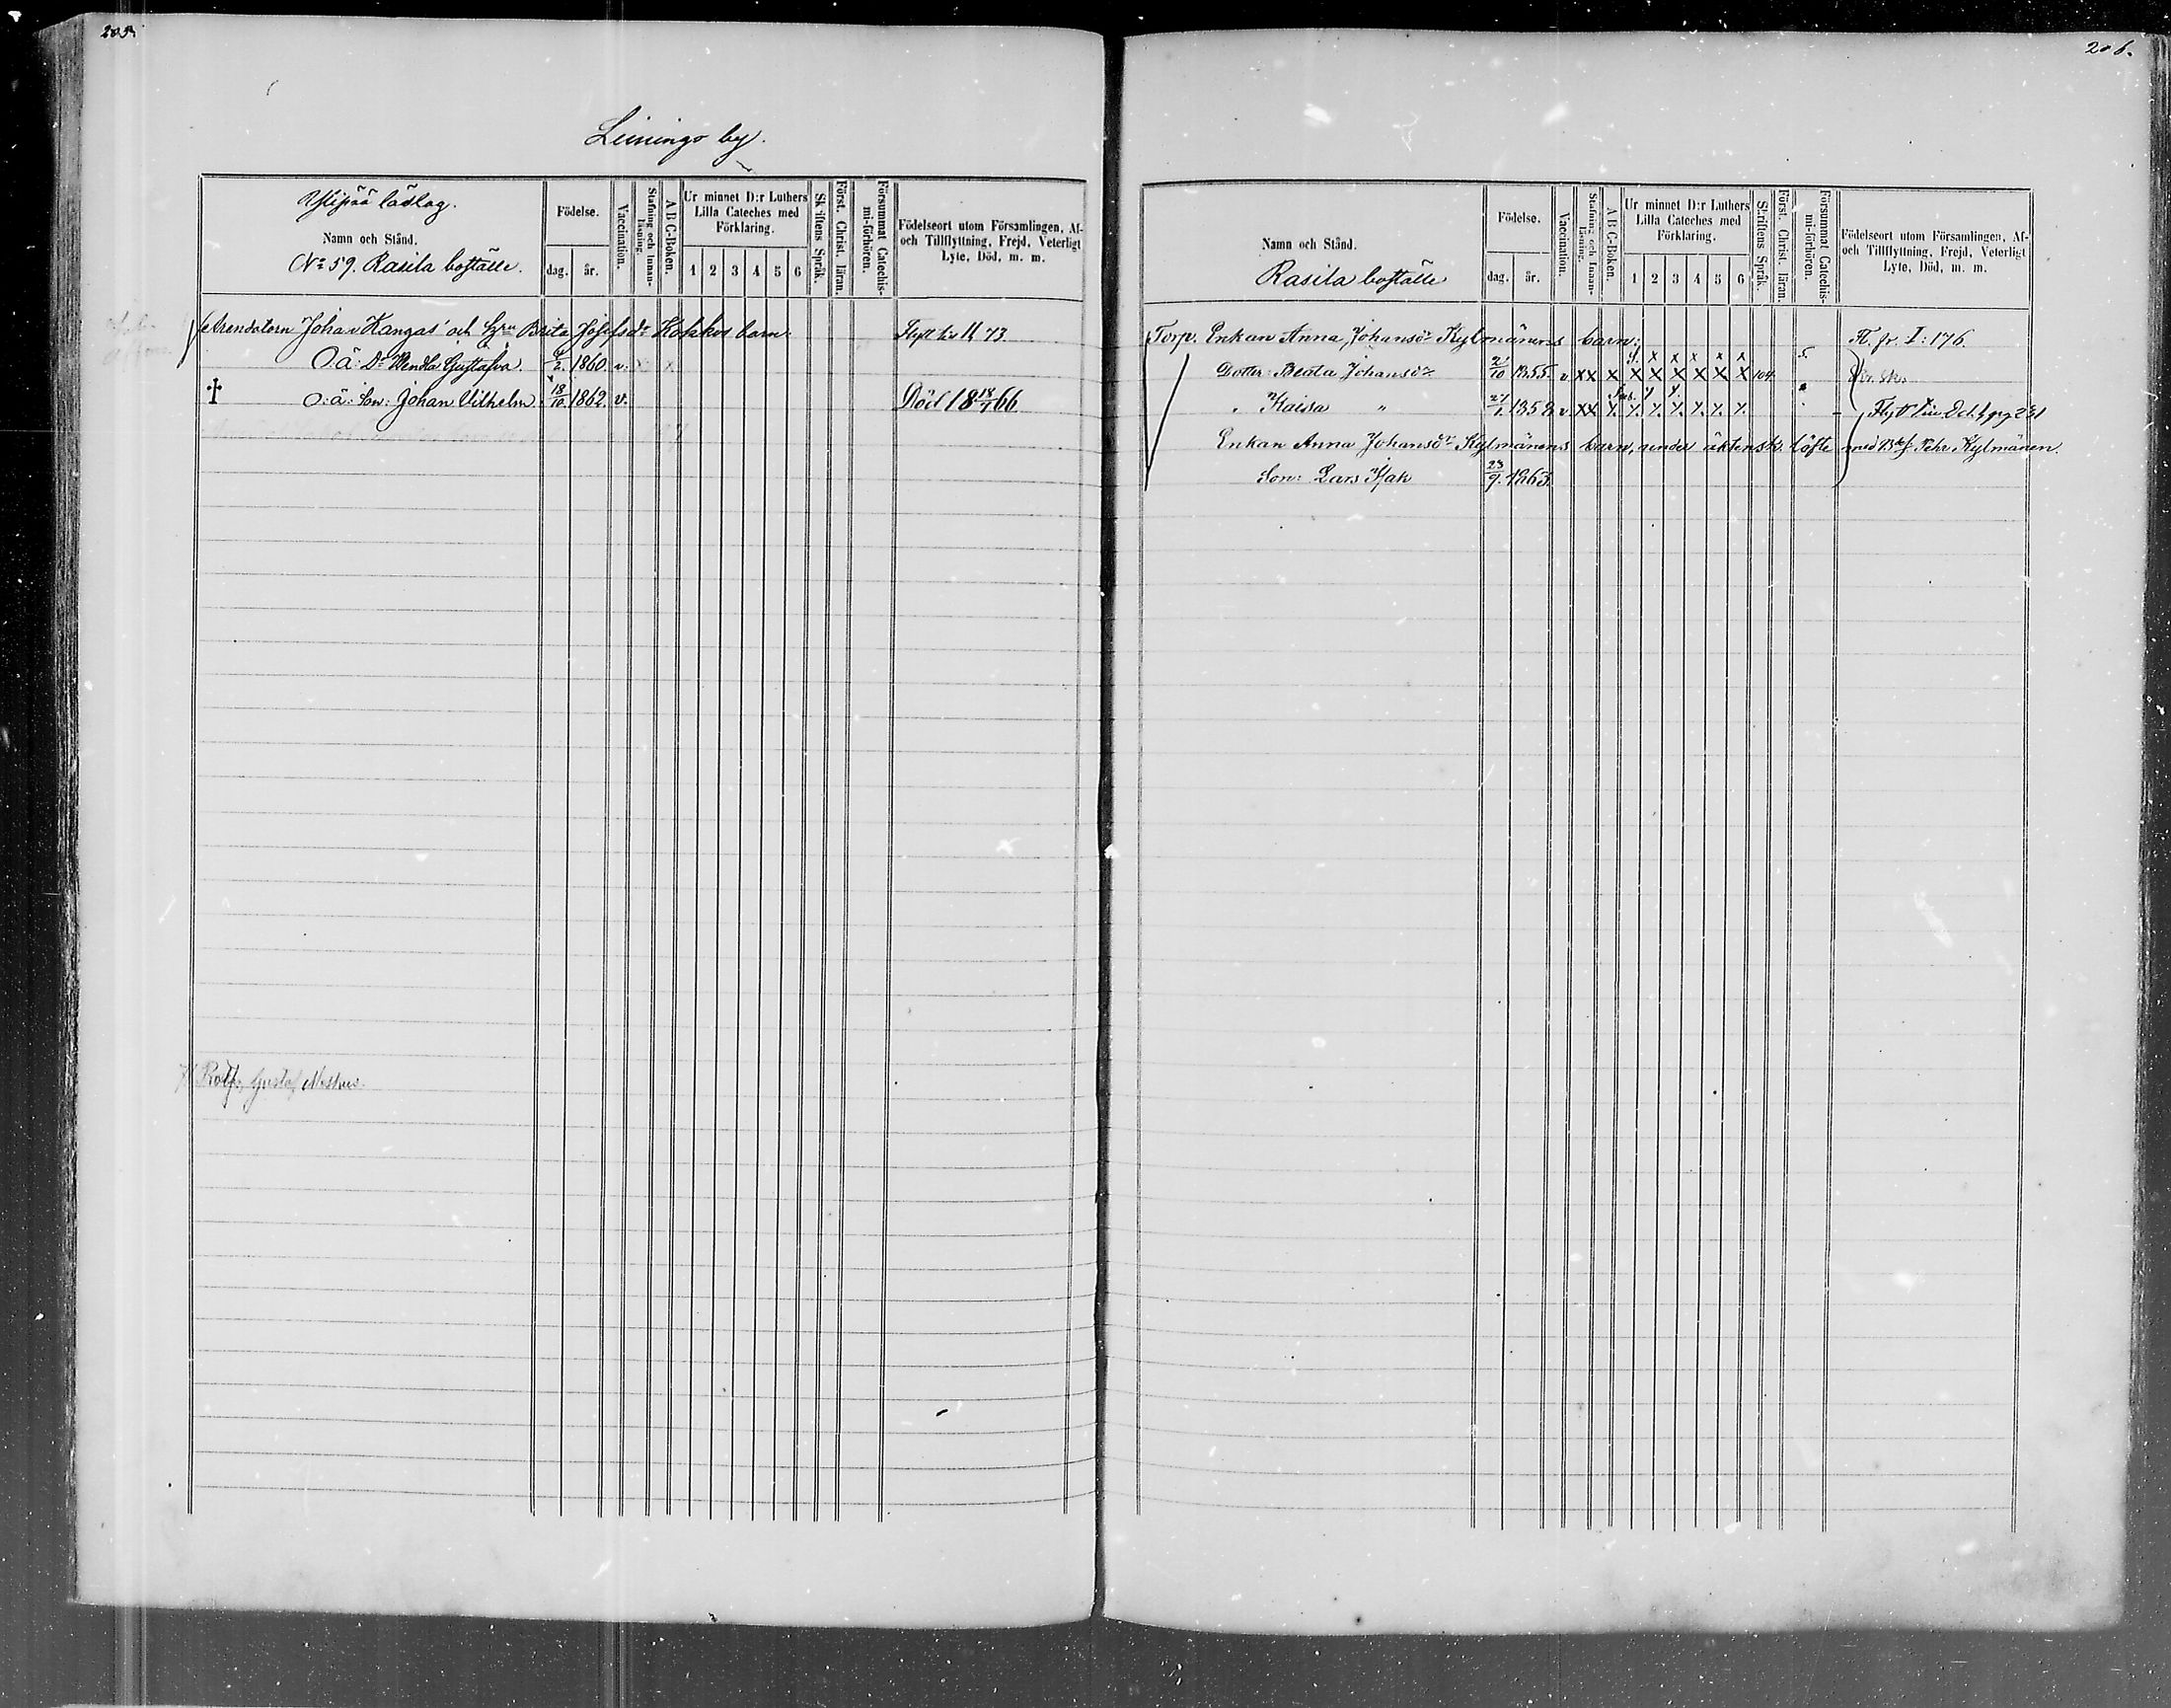 205.
Leiningo by.
Ylipää läslag.
Namn och Stånd.
No 59. Rasila boställe.
Födelse.
dag. år.
Vaccination.
Stafning och Innan-läsning.
A B C-Boken.
Ur minnet D:r Luthers Lilla Cateches med Förklaring.
1 2 3 4 5 6
Skriftens Språk.
Först. Christ. läran.
Försummat Catechis-mi-förhören.
Födelseort utom Församlingen, Af- och Tillflyttning, Frejd, Veterligt Lyte, Död, m. m.
Arendatorn Johan Kangas' och Hru Brita Josefsdr Kokkos barn. Flytt
O.ä: Dr Wendla Gustafva. 1860. v.
† O:ä: Son: Johan Vilhelm. 18/10. 1862. v. Död 18 18/1 66
Gustaf
206.
Namn och Stånd.
Rasila boställe
Födelse.
dag. år.
Vaccination.
Stafning och Innan-läsning.
A B C-Boken.
Ur minnet D:r Luthers Lilla Cateches med Förklaring.
1 2 3 4 5 6
Skriftens Språk.
Först. Christ. läran.
Försummat Catechis-mi-förhören.
Födelseort utom Församlingen, Af- och Tillflyttning, Frejd, Veterligt Lyte, Död, m. m.
Torp. Enkan Anna Johansdr Kylmänens barn: Fl. fr. I: 176.
Dotter: Beata Johansdr 21/10 1855. v x x x x x x x x x 104
" Kaisa " 27/1. 1858. v x x
Enkan Anna Johansdr Kylmänens barn, under äktensk. löfte med Pehr Kylmänen.
Son: Lars Isak 23/9. 1863.